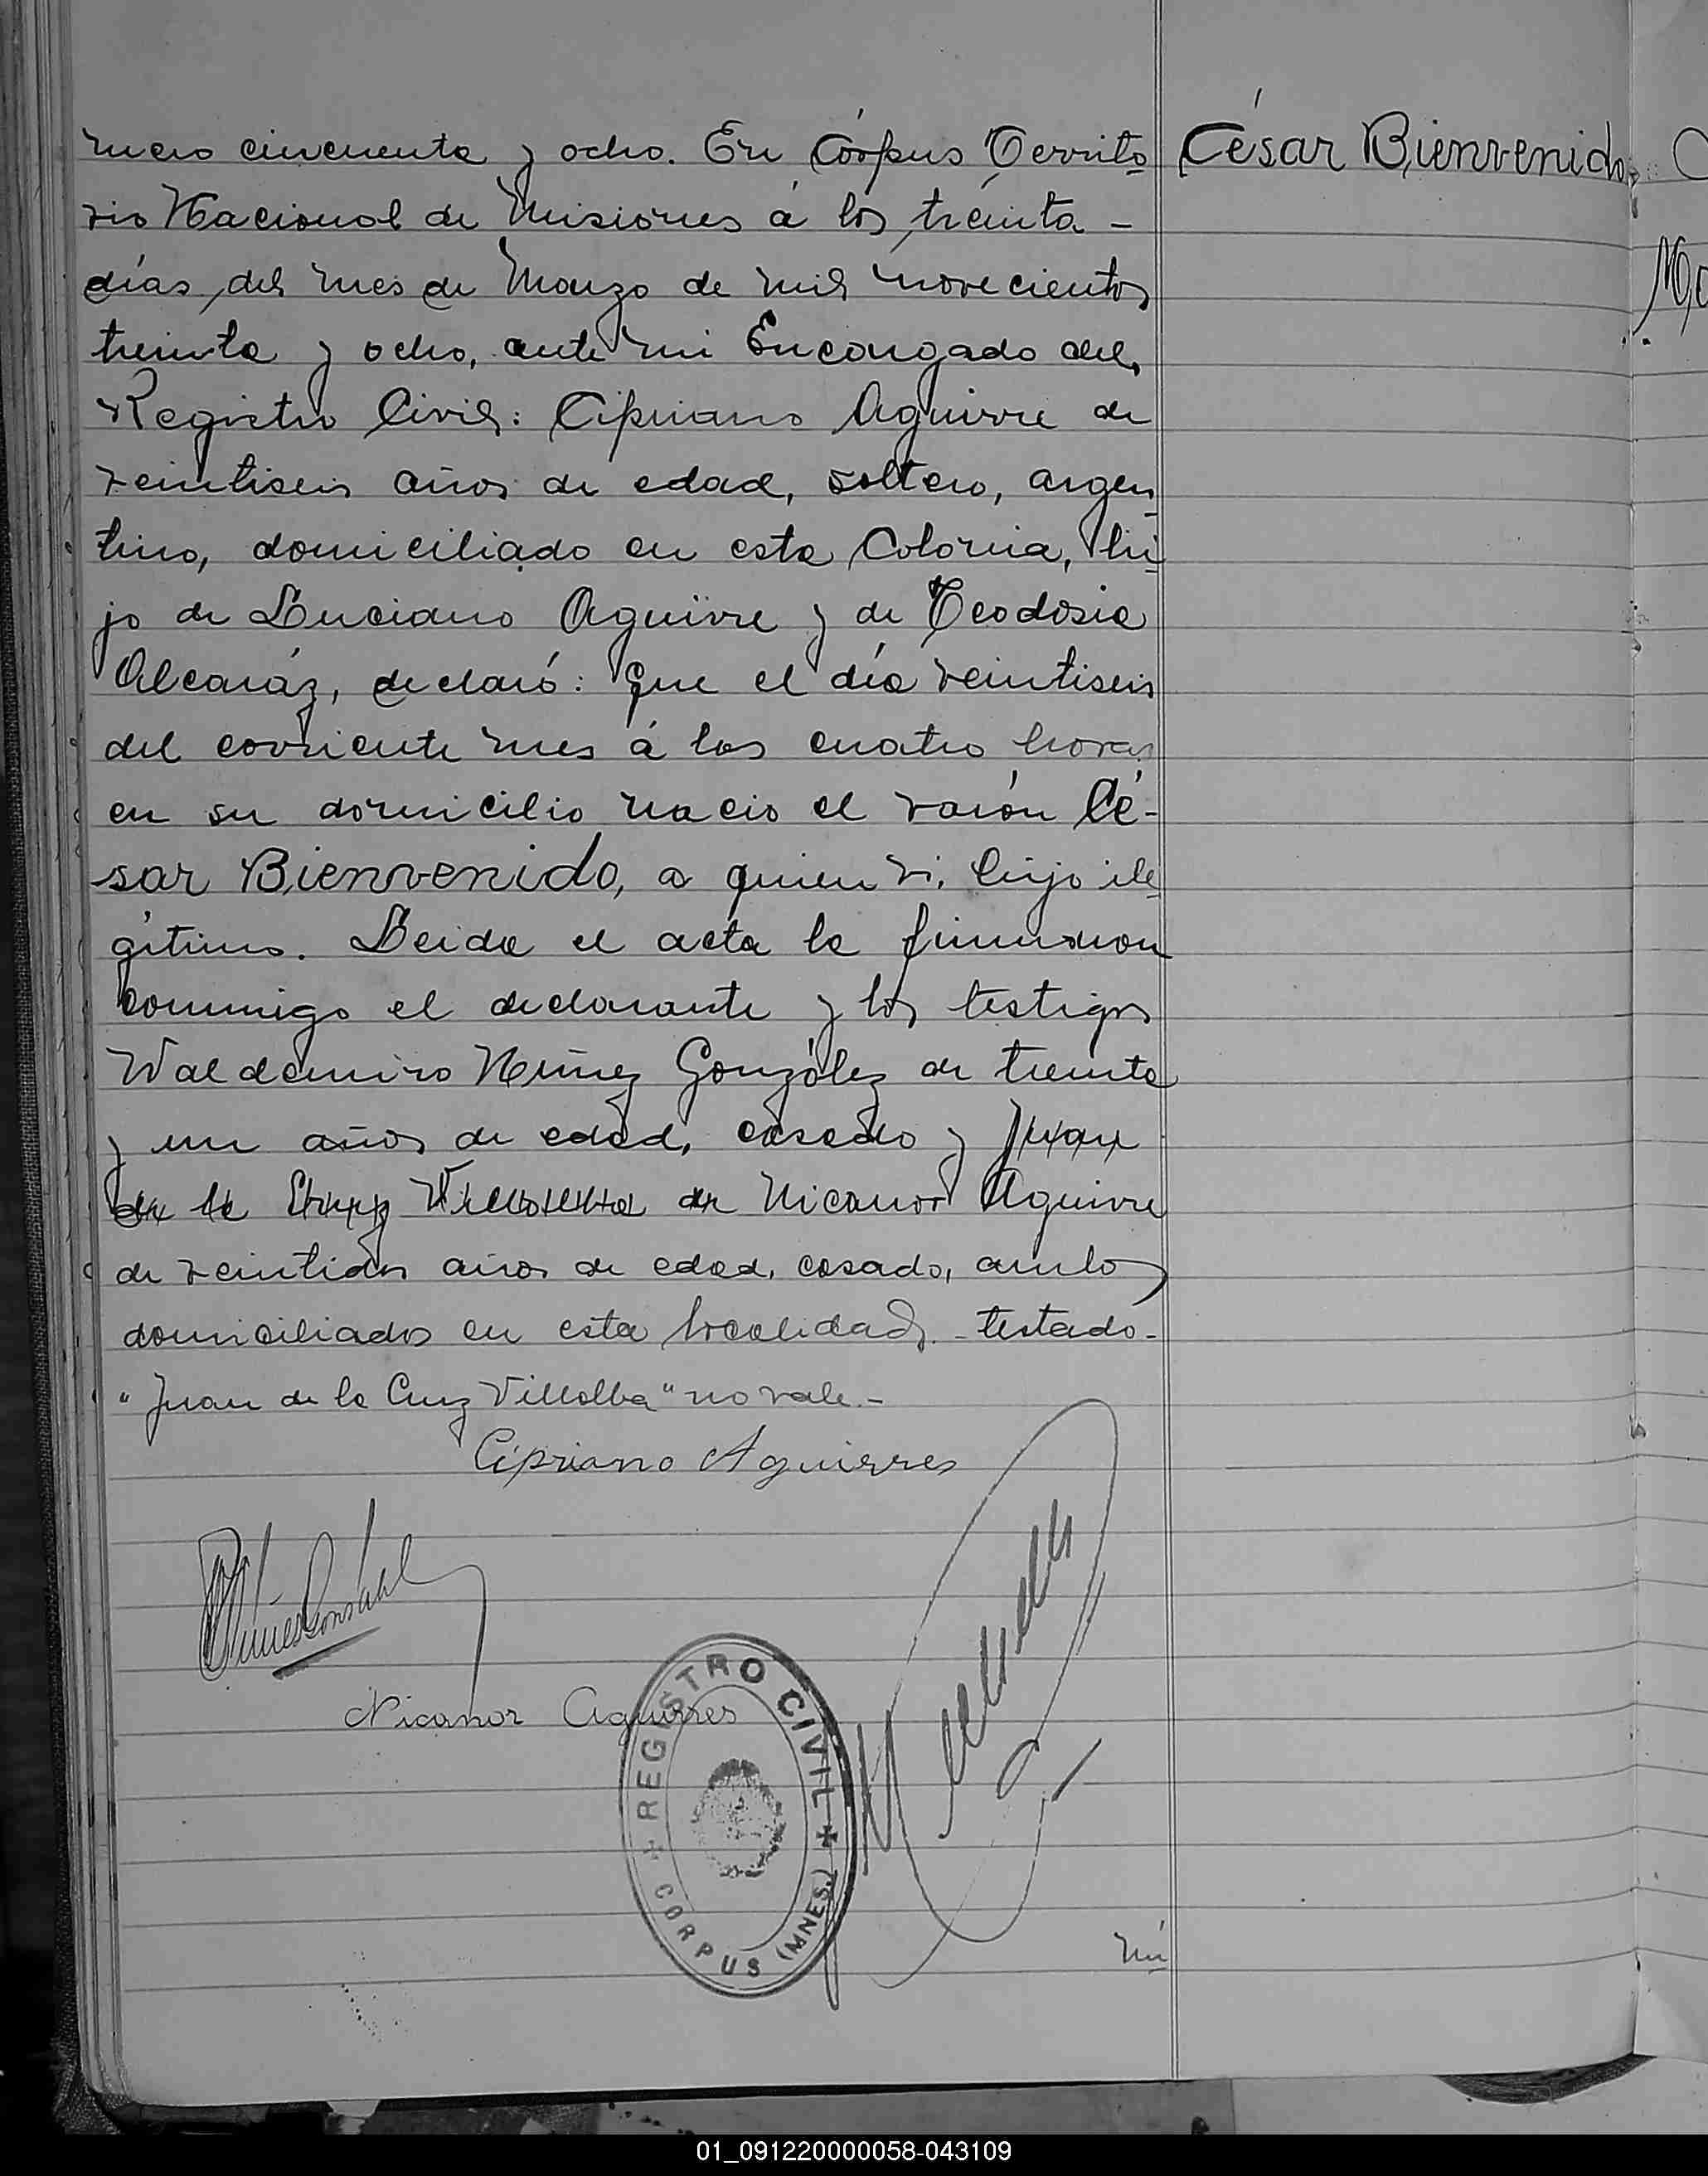 mero cincuenta y ocho. En Córpus Territo
rio Nacional de Misiones á los treinta -
días del mes de Marzo de mil novecientos
treinta y ocho, ante mi Encargado del
Registro Civil: Cipriano Aguirre de
veintiseis años de edad, soltero, argen
tino, domiciliado en esta Colonia, hi
jo de Luciano Aguirre y de Teodosia
Alcaráz, declaró: Que el día veintiseis
del corriente mes á las cuatro horas
en su domicilio nacio el varón Cé-
sar Bienvenido, a quien vi, hijo ile
gitimo. Leida el acta la firmaron
conmigo el declarante y los testigos
Waldemiro Nuñez González de treinta
y un años de edad, casado y Juan
de la Cruz Villalba de Nicanor Aguirre
de veintidos años de edad, casado, ambos
domiciliados en esta localidad. - testado -
"Juan de la Cruz Villalba" no vale. -
Cipriano Aguirres
Nicanor Aguirres
REGISTRO CIVIL
CORPUS (MNES.)
nú
César Bienvenido
01_091220000058-043109